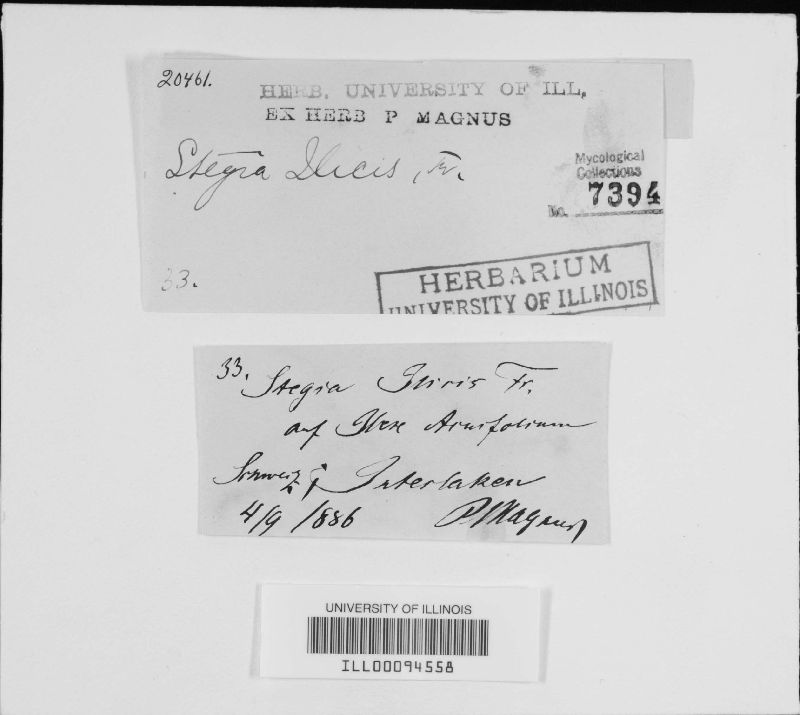 20461.
HERB. UNIVERSITY OF ILL,
EX HERB P MAGNUS
Stegia Ilicis, Fr.
Mycological
Collections
No. 7394
33.
HERBARIUM
UNIVERSITY OF ILLINOIS
33. Stegia Ilicis Fr.
auf Ilex Aquifolium
Schweiz Interlaken
4/9 1886 P Magnus
UNIVERSITY OF ILLINOIS
ILL00094558